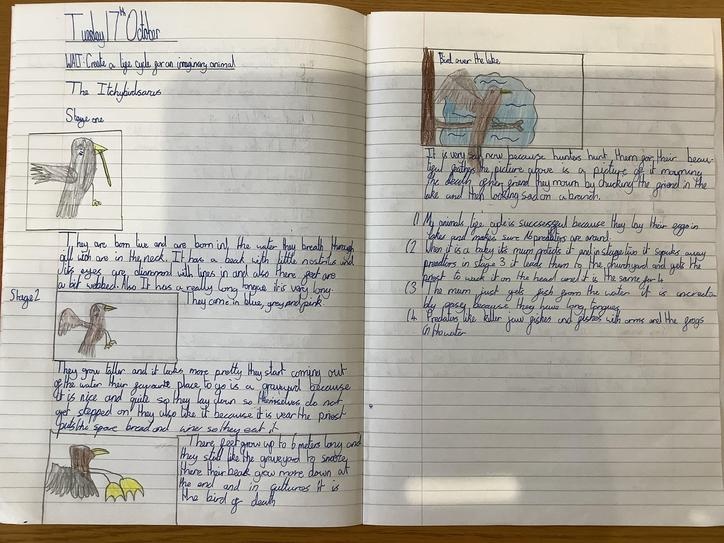 Tuesday 17th October
WALT: Create a life cycle for an imaginary animal
The Itchybirdsarus
Stage one
They are born live and are born in the water they breath through
gill with are in the neck. It has a beak with little nostrils and
its eyes are diamond with lines in and also there feet are
a bit webbed. Also It has a really long tongue it is very long.
They come in blue, grey and pink.
Stage 2
They grow taller and it looks more pretty they start coming out
of the water their favourite place to go is a graveyard because
it is nice and quite so they lay down so themselves do not
get stepped on they also like it because it is near the priest
puts the spare bread and wine so they eat it
There feet grow up to 6 meters long and
they still like the graveyard to snooze
there their beak grow more down at
the end and in cultures it is
the bird of death
Bird over the lake
It is very rare now because hunters hunt them for their beau-
tiful feathers the picture above is a picture of it mourning
the death of her friend they mourn by chucking the friend in the
lake and then looking sad on a branch.
(1 My animals life cycle is successful because they lay their eggs in
lakes and makes sure no predators are around.
(2 When it is a baby its mum protects it and in stage two it spukes away
predators in stage 3 it leads them to the churchyard and gets the
priest to wack it on the head and it is the same for 4
(3 The mum just gets fish from the water it is
easy because they have long tongues
(4 Predators like killer jaw fishes and fishes with arms and the frogs
in the water